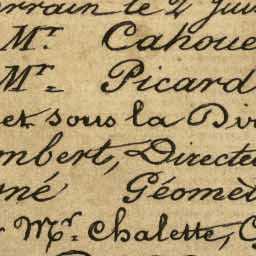 rrain le 2 Jui
Mr. Cahoue
Mr. Picard
et sous la Dir
mbert, Directe
né Géomèt
Mr. Chalette, C